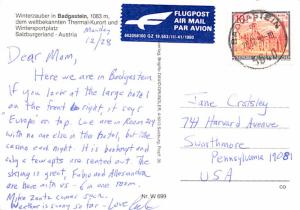 Winterzauber in Badgastein, 1083 m,
dem weltbekannten Thermal-Kurort und
Wintersportplatz
Salzburgerland - Austria
Monday
12/28
FLUGPOST
AIR MAIL
PAR AVION
Dear Mom,
Here we are in Badgastein.
If you look at the large hotel
on the front it says
Europa on top. We are in Room
with no one else in the hotel, but the
casino each night. It is
only a few apts are rented out. The
skiing is great, Fabio and Allessandra
are here with us - 6 in one room.
comes soon.
Weather is sunny so far - Love
Jane Crassley
741 Harvard Avenue
Swarthmore
Pennsylvania 19081
USA
Nr. W 699